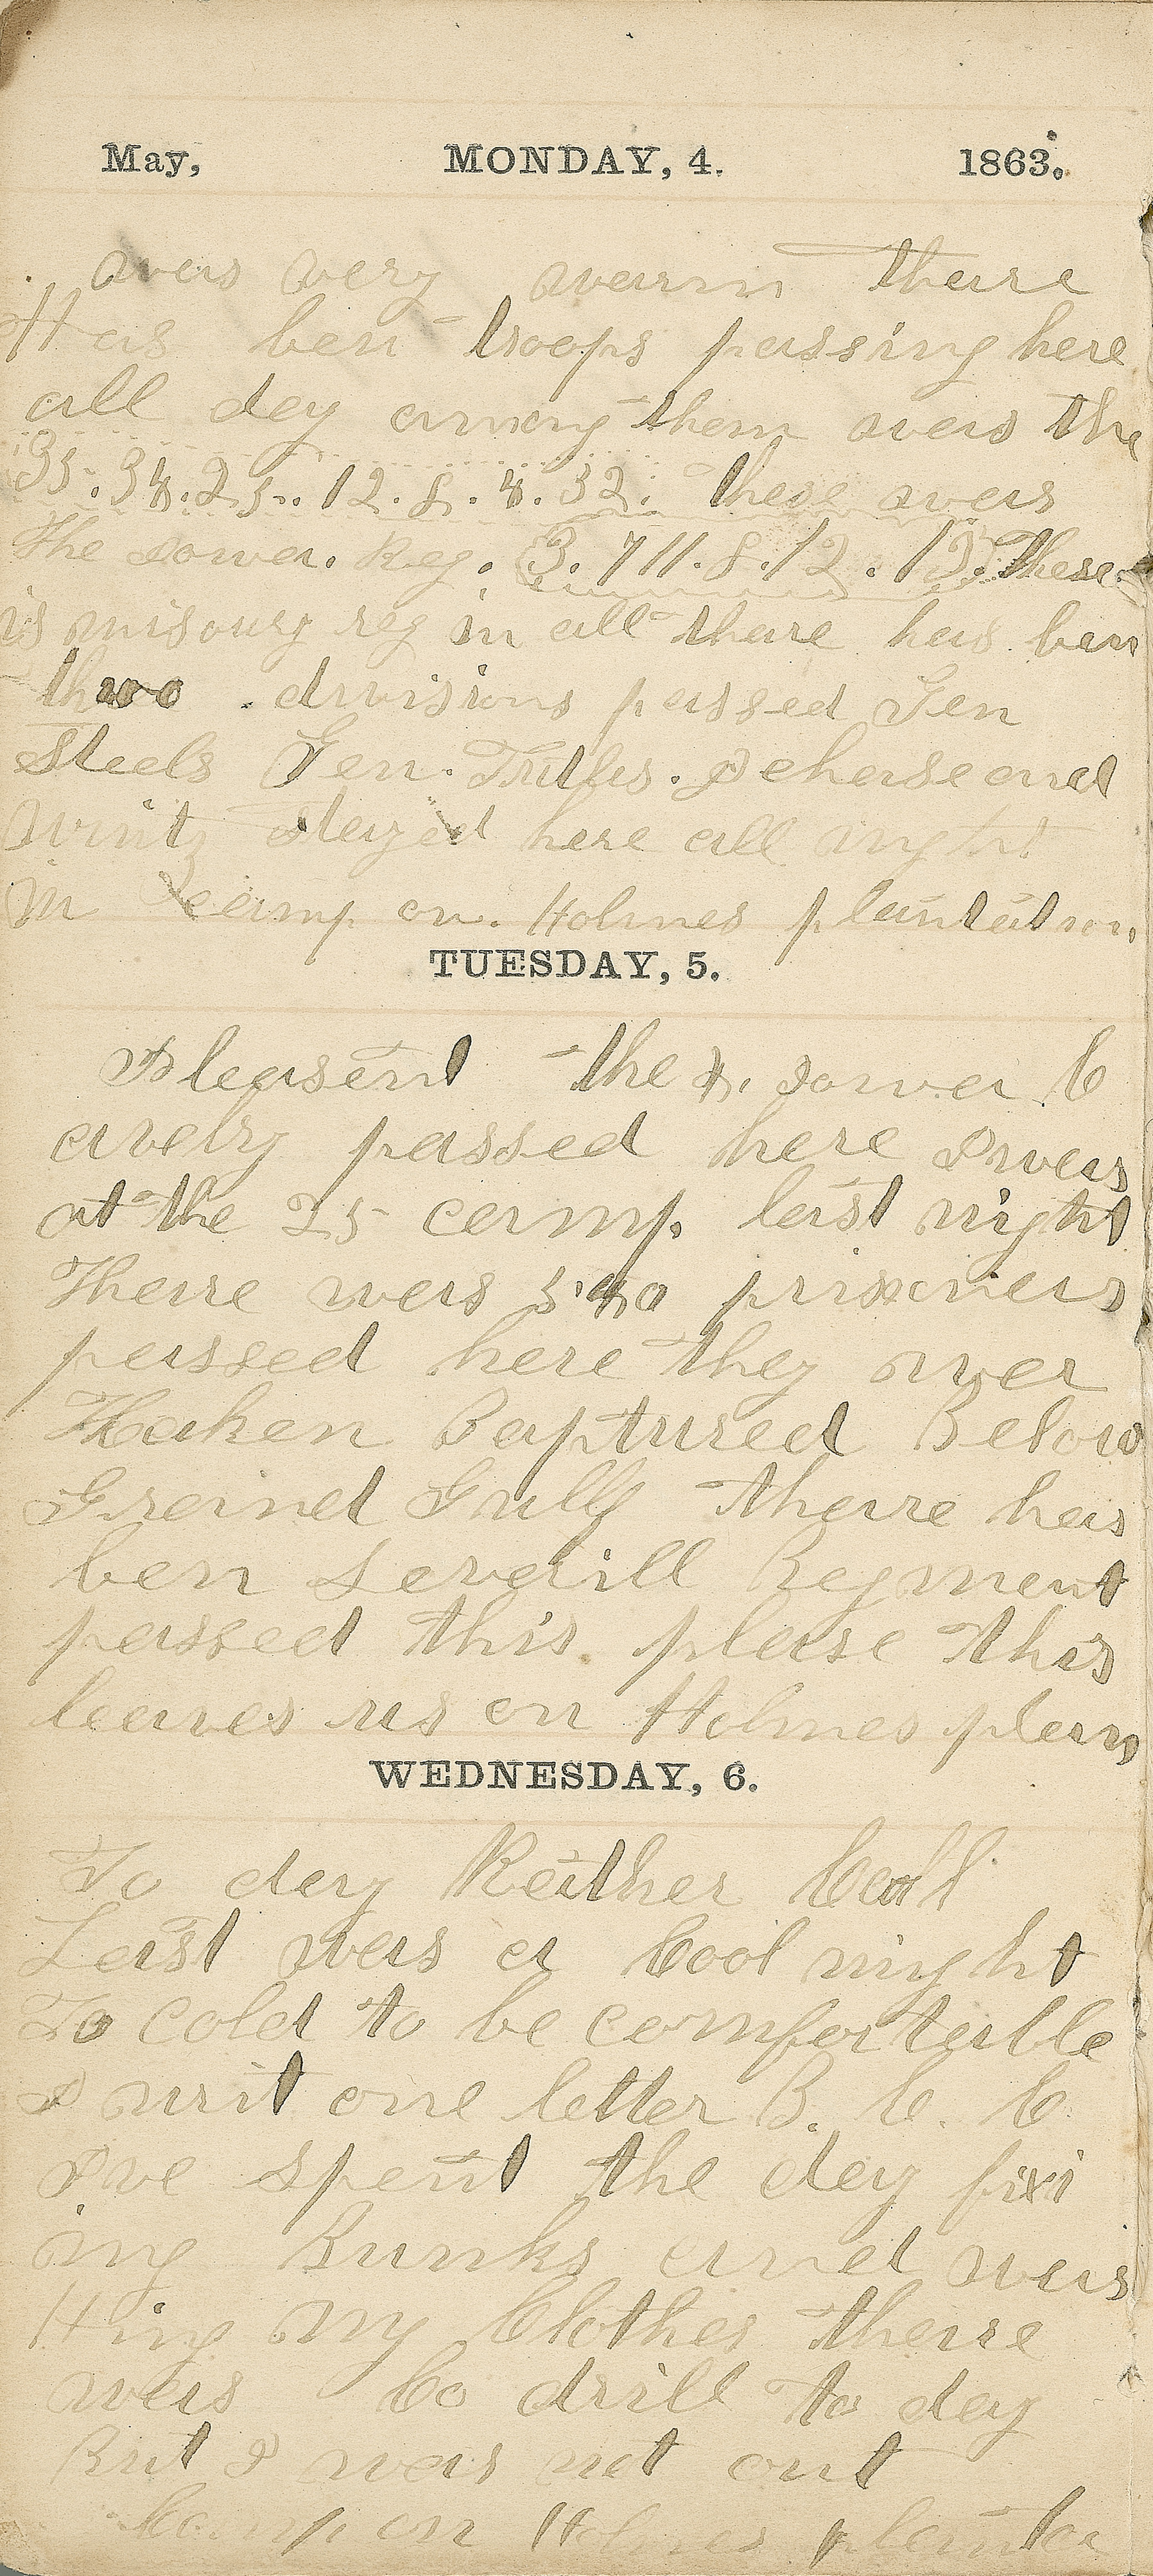 May, MONDAY, 4. 1863.
was very warm thare
Has ben troops passing here
all day among them was the
35. 34. 25. 12. 8. 4. 32. these was
The Iowa. Reg. 3. 711. 8. 12. 13. These
is misoury reg in all thare has ben
two divisions passed Gen
Steels Gen. Tutles. I chase and
stayed here all night
in camp on. Holmes plantation
TUESDAY, 5.
Pleasent the 4. Iowa C
avelry passed here I was
at the 25 camp. last night
Thare was prisoners
passed here they wer
Taken Captured Below
Grand Gulf thare has
ben Severill Regment
passed this place this
leaves us on Holmes plan
WEDNESDAY, 6.
To day Rather Coll
Last was a Cool night
To cold to be comfortable
I writ one letter B. C. C
I've spent the day fixi
ing Bunks and was
Hing my Clothes thare
was Co drill to day
But I was not out
Camp on Holmes planta